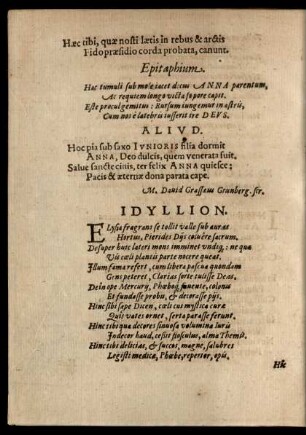 Hæc tibi, quæ nosti lætis in rebus & arctis
Fido præsidio corda probata, canunt.
Epitaphium.
Hac tumuli sub mole jacet decus ANNA parentum,
Ac requiem longo victa sopore capit.
Este procul gemitus: Rursum jungemur in astris,
Cum nos è latebris jusserit ire DEVS.
ALIVD.
Hoc pia sub saxo IVNIORIS filia dormit
ANNA, Deo dulcis, quem venerata fuit.
Salue sancte cinis, ter felix ANNA quiesce;
Pacis & æternæ dona parata cape.
M. David Grassow Grunberg. sir.
IDYLLION.
ELysia fragrans se tollit valle sub auras
Hortus, Pierides Dijs coluêre sacrum.
Desuper huic lateri mons imminet vndiq; ne quæ
Vis cœli plantis parte nocere queat.
Illum fama refert, cum libera pascua quondam
Grex peteret, Clarias sorte tulisse Deas.
Dein ope Mercurij, Phœboq; fouente, colonis
Et fundasse probis, & decorasse pijs.
Hinc sibi sæpe Dicen, cœli cus mystica curæ
Quit vates ornet, serta parasse ferunt.
Hinc tibi quæ decoret sinuosa volumina Iuris
Indecor haud, cessit flosculus, alma Themis.
Hinc tibi delicias, & succos, magne, salubres
Legisti medicæ, Phœbe, repertor, opis,
Hic